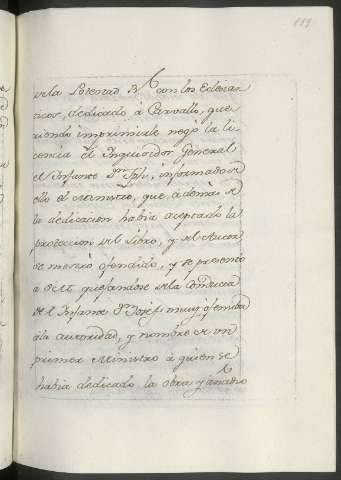 119
de la Potestad Rl con los Eclesias
ticos, dedicado à Carvallo, que
riendo imprimirle negó la li
cencia el Inquisidor General
el Infante Dn Jph, informado de
ello el Ministro, que à demas de
la dedicacion habia aceptado la
proteccion del libro, y del Autor
se mostró ofendido, y se presentó
a quejandose de la Conducta
del Infante Dn Josef muy ofensiva
à la autoridad, y nombre de un
primer Ministro à quien se
habia dedicado la obra y